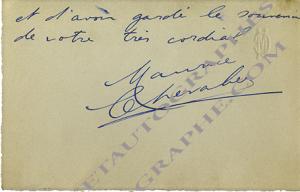 et d'avoir gardé le souvenir
de votre très cordial
Maurice
Chevalier